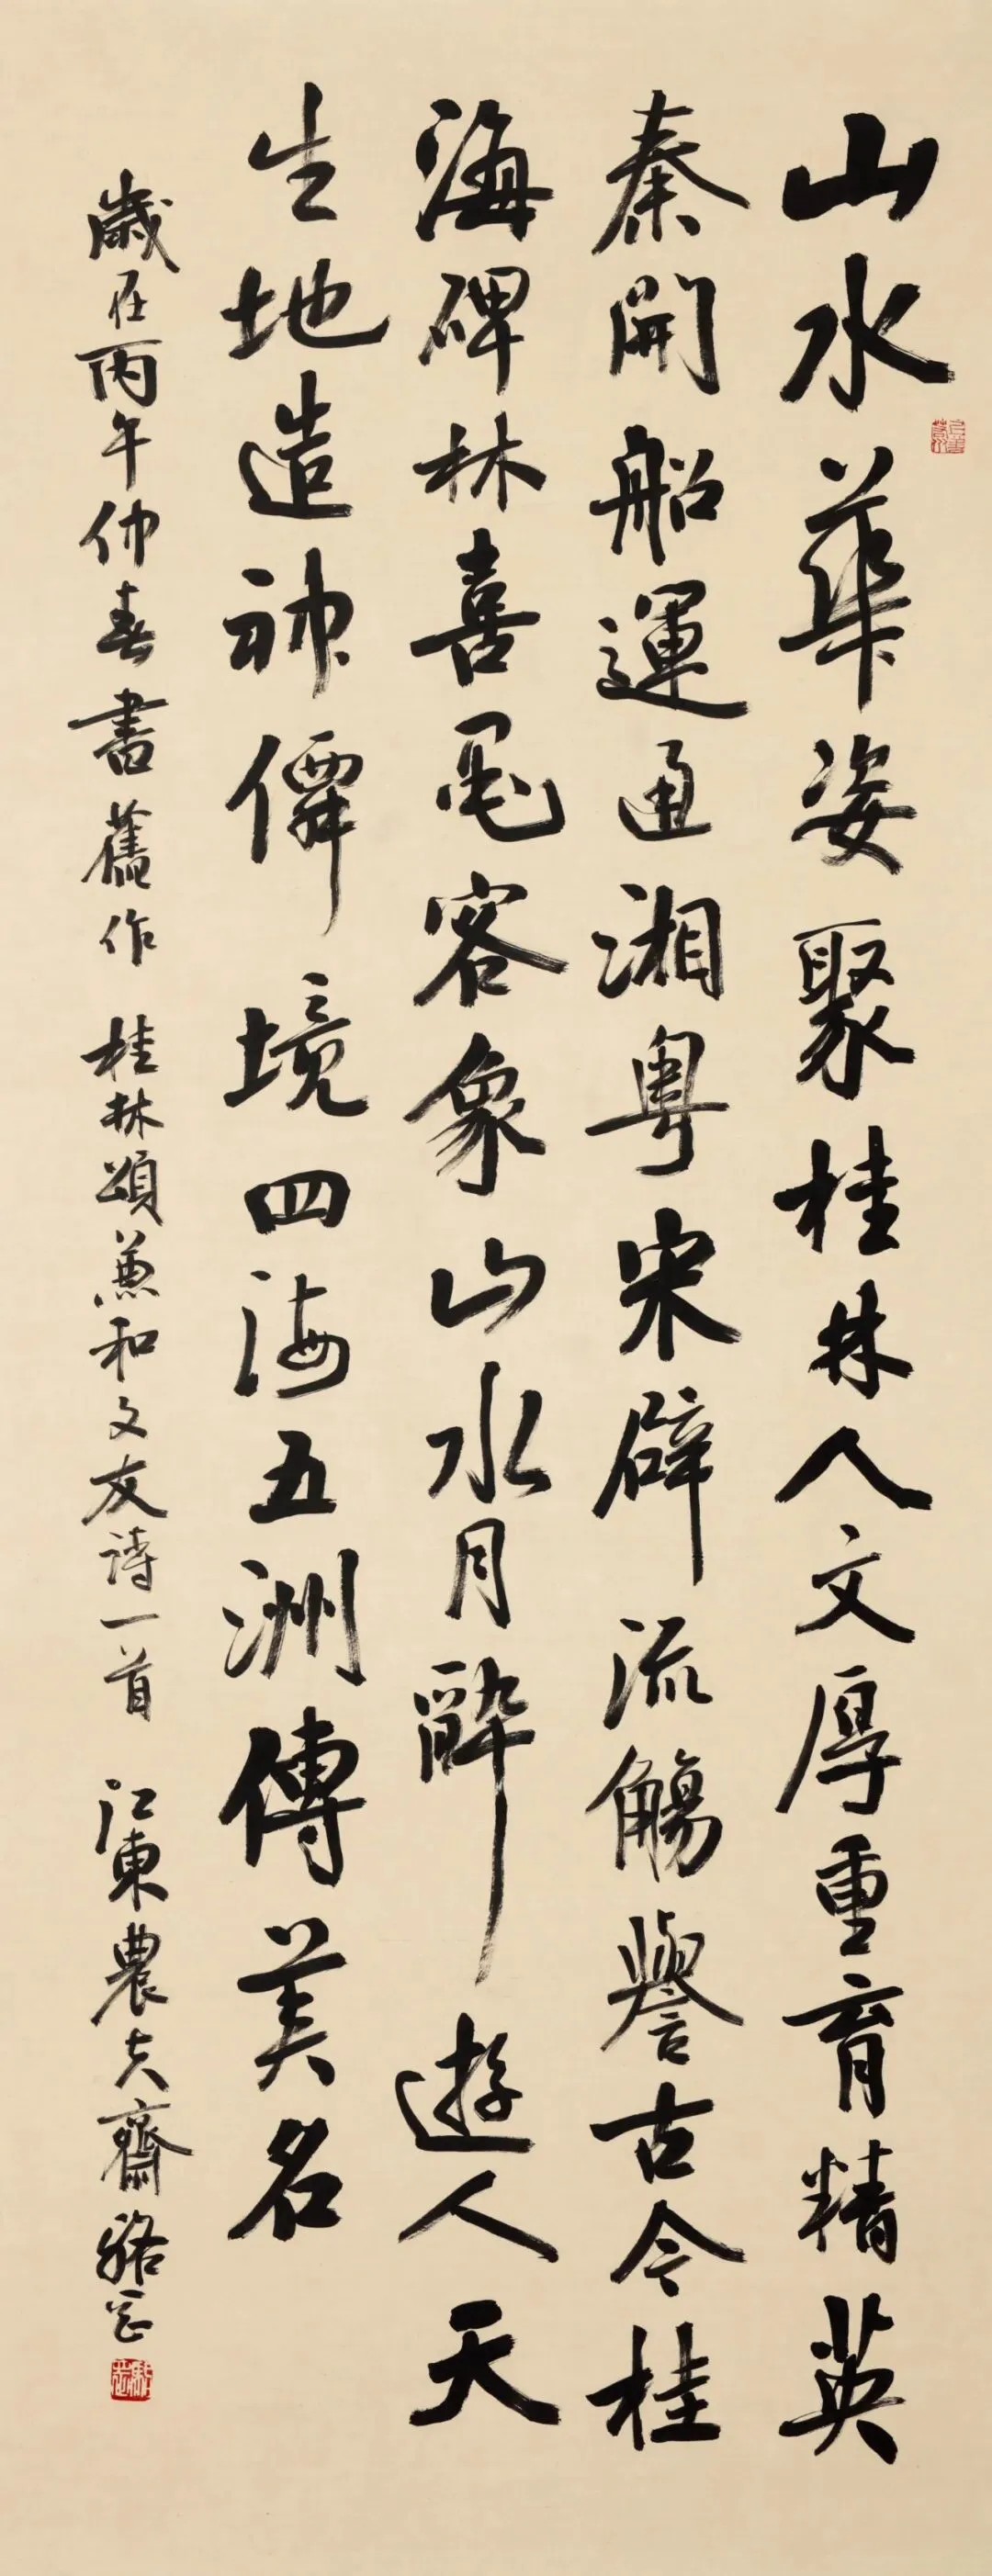 山水華姿聚桂林人文厚重育精英
秦開船運通湘粵宋辟流觴譽古今桂
海碑林喜墨客象山水月醉遊人天
生地造神僊境四海五洲傳美名
歲在丙午仲春書舊作 桂林頌兼和文友詩一首 江東農夫齋駱芒